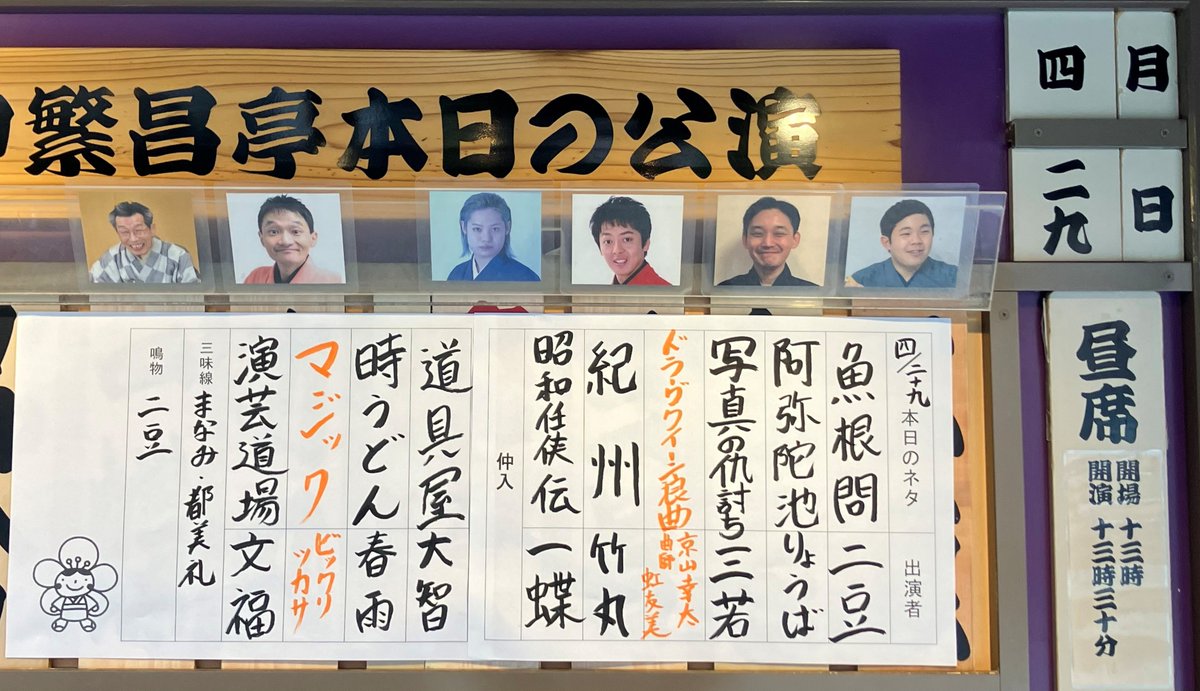 繁昌亭本日の公演
四月
二九日
昼席
開場 十三時
開演 十三時三十分
四/二十九 本日のネタ 出演者
魚根問 二豆
阿弥陀池 りょうば
写真の仇討ち 三若
ドラァグクイーン浪曲 京山幸太
曲師 虹友美
紀州 竹丸
昭和任侠伝 一蝶
仲入
道具屋 大智
時うどん 春雨
マジック ビックリツカサ
演芸道場 文福
三味線 まなみ・都美礼
鳴物 二豆